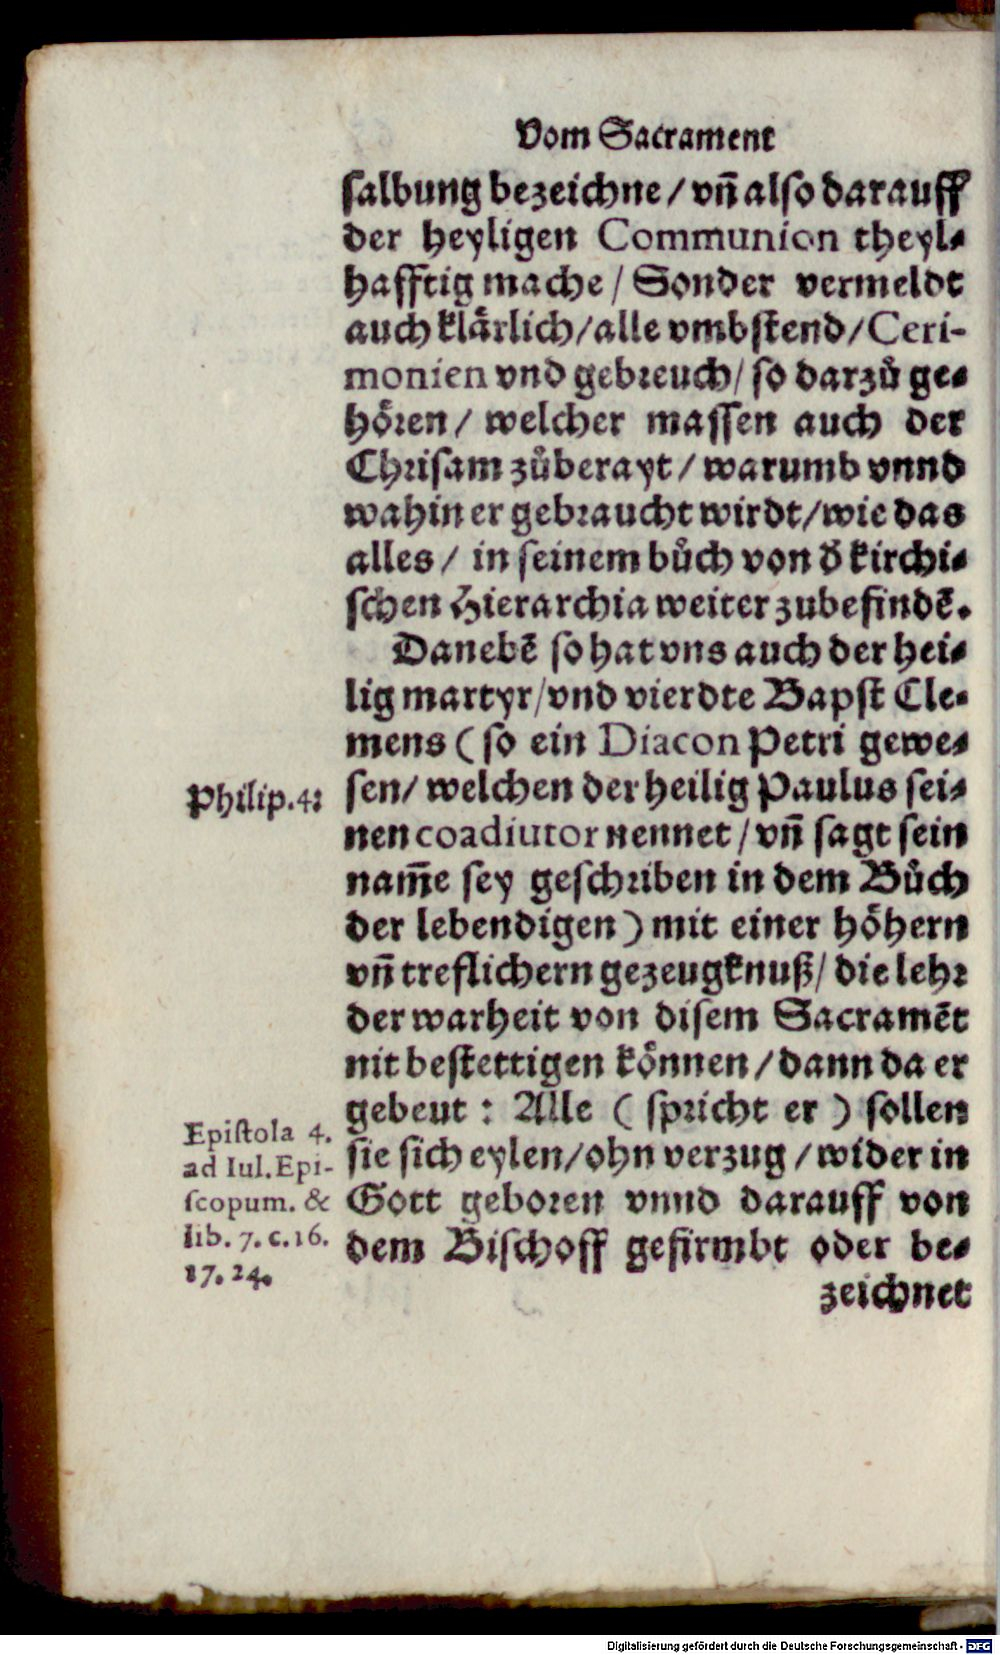 Vom Sacrament
salbung bezeichne / vñ also darauff
der heyligen Communion theyl-
hafftig mache / Sonder vermeldt
auch klårlich / alle vmbstend / Ceri-
monien vnd gebreuch / so darzů ge-
hören / welcher massen auch der
Chrisam zůberayt / warumb vnnd
wahin er gebraucht wirdt / wie das
alles / in seinem bůch von d̕ kirchi-
schen Hierarchia weiter zubefindē.
Danebē so hat vns auch der hei-
lig martyr / vnd vierdte Bapst Cle-
mens ( so ein Diacon Petri gewe-
Philip. 4:
sen / welchen der heilig Paulus sei-
nen coadiutor nennet / vñ sagt sein
nam̄e sey geschriben in dem Bůch
der lebendigen ) mit einer höhern
vñ treflichern gezeugknuß / die lehr
der warheit von disem Sacramēt
nit bestettigen können / dann da er
gebeut : Alle ( spricht er ) sollen
Epistola 4.
ad Iul. Epi-
scopum. &
lib. 7. c. 16.
17. 24.
sie sich eylen / ohn verzug / wider in
Gott geboren vnnd darauff von
dem Bischoff gefirmbt oder be-
zeichnet
Digitalisierung gefördert durch die Deutsche Forschungsgemeinschaft - DFG